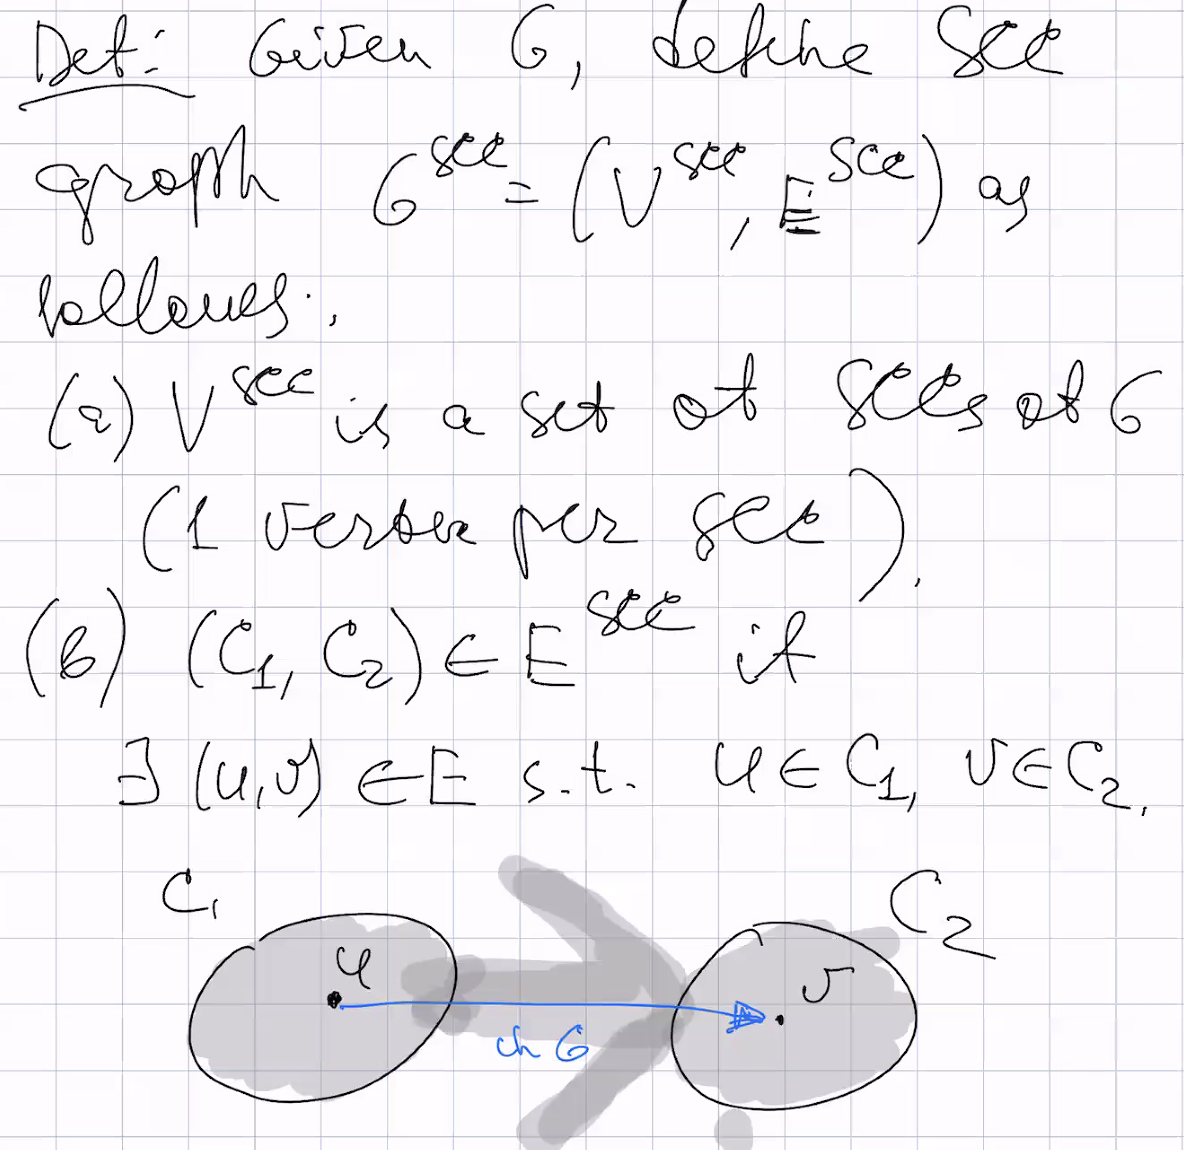 Def: Given G, define SCC
graph G^SCC = (V^SCC, E^SCC) as
follows:
(a) V^SCC is a set of SCCs of G
(1 vertex per SCC).
(b) (C₁, C₂) ∈ E^SCC if
∃ (u,v) ∈ E s.t. u ∈ C₁, v ∈ C₂.
C₁ C₂
u v
in G